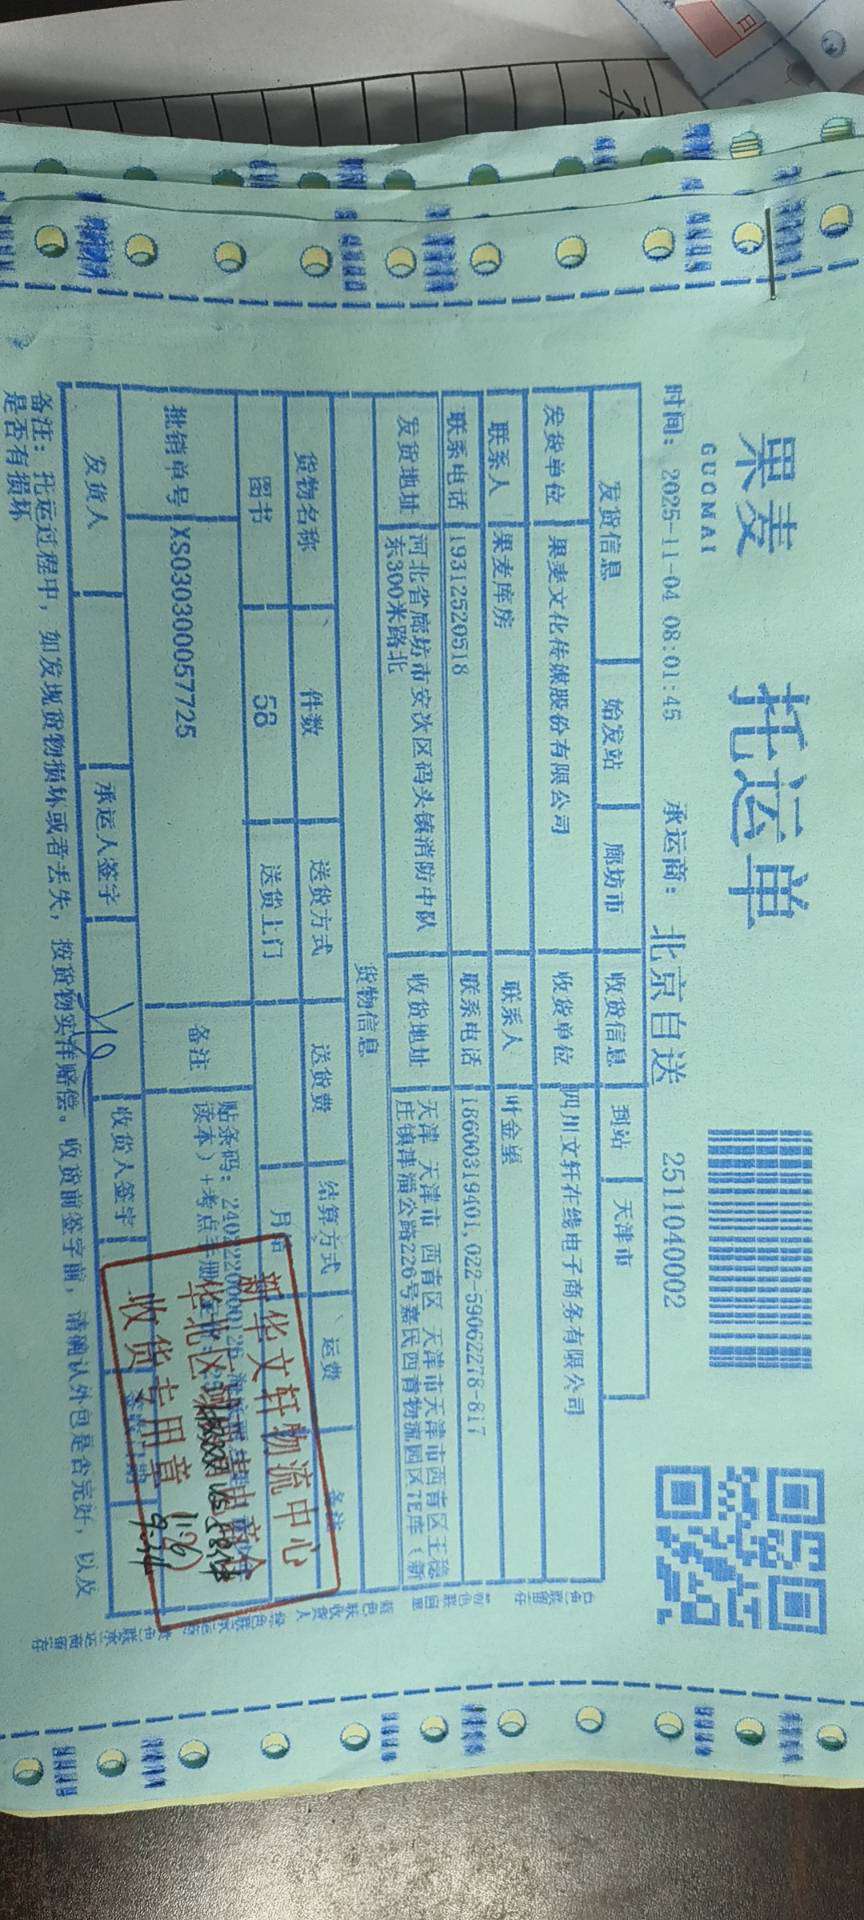 果麦 托运单
GUOMAI
时间: 2025-11-04 08:01:45 承运商: 北京自送 2511040002
发货信息 始发站 廊坊市 收货信息 到站 天津市
发货单位 果麦文化传媒股份有限公司 收货单位 四川文轩在线电子商务有限公司
联系人 果麦库房 联系人 叶金星
联系电话 19312520518 联系电话 18600319401,022-59062278-817
发货地址 河北省廊坊市安次区码头镇消防中队东300米路北 收货地址 天津 天津市 西青区 天津市天津市西青区王稳庄镇津淄公路226号嘉民西青物流园区7E库(新
货物信息
货物名称 件数 送货方式 送货费 结算方式 运费 备注
图书 58 送货上门 月结
批销单号 XS030300057725 备注 贴条码:
读本)+考点手册
发货人 承运人签字 收货人签字
备注: 托运过程中, 如发现货物损坏或者丢失, 按货物实洋赔偿。收货前签字前, 请确认外包是否完好, 以及
是否有损坏
新华文轩物流中心
华北区
收货专用章